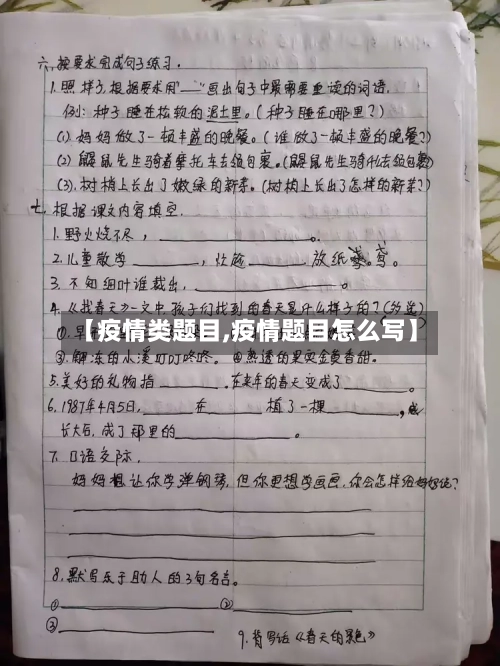 六、按要求完成句子练习。
1.照样子,根据要求用“——”画出句子中最需要重读的词语。
例:种子睡在松软的泥土里。(种子睡在哪里?)
(1).妈妈做了一顿丰盛的晚餐。(谁做了一顿丰盛的晚餐?)
(2)鼹鼠先生骑着摩托车去组包裹。(鼹鼠先生骑什么去组包裹)
(3).树梢上长出了嫩绿的新芽。(树梢上长出了怎样的新芽?)
七、根据课文内容填空.
1.野火烧不尽,____________。
2.儿童散学________,忙趁______放纸鸢。
3.不知细叶谁裁出,____________。
4.《找春天》一文中,孩子们找到的春天是什么样子的?(多选)
【疫情类题目,疫情题目怎么写】
③.解冻的小溪叮叮咚咚。④熟透的果实金黄香甜。
5.美好的礼物指______.在来年的春天变成了______。
6.1987年4月5日,______在______植了一棵______,
长大后,成了那里的____________。
7.口语交际.
妈妈想让你学弹钢琴,但你更想学画画,你会怎样给妈妈说?
8.默写乐于助人的3句名言。
①____________②____________
③____________
9.背写话《春天的景色》